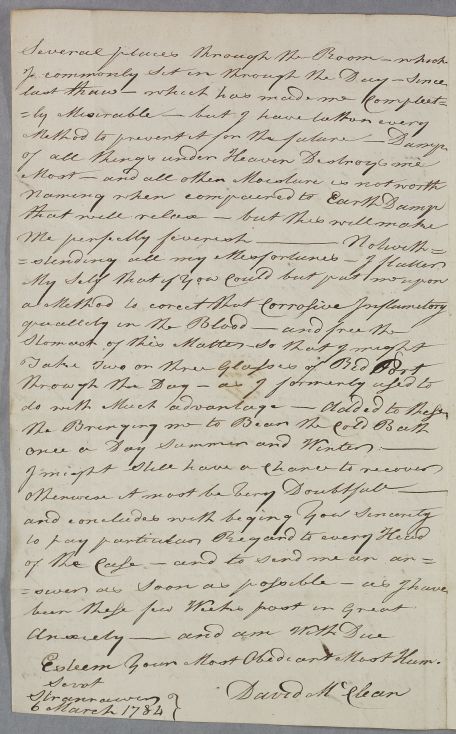 Several places through the Room – which
I commonly Sit in through the Day – Since
last thaw – which has made me Compleet=
=ly Miserable – but I have taken every
Method to prevent it for the future – Damp
of all things under Heaven Destroys me
Most – and all other Moisture is not worth
Naming when compaired to Earth Damp
that will relax – but this will make
Me perfectly feverish ——— Notwith=
=standing all my Mesfortunes – I flatter
My Self that if You Could but put me upon
a Method to corect that Corrosive Inflametory
quallity in the Blood – and free the
Stomach of this Matter so that I might
Take Two or three Glasses of Red Port
through the Day – as I formerly used to
do with Much advantage – Added to these
the Bringing me to Bear the Cold Bath
once a Day Summer and Winter —
I might Still have a Chance to recover
otherwise it must be very Doubtfull —
and concludes with beging your Sincerly
to pay particular Regard to every Head
of the Case – and to send me an an=
=swer as soon as possible – as I have
been these few Weeks past in Great
Anxiety — and am With Due
Esteem Your Most Obediant Most Hum.
Servt
David McClean
Stranrawer
6 March 1784